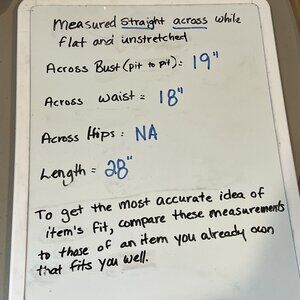 Measured straight across while
flat and unstretched
Across Bust (pit to pit): 19"
Across waist = 18"
Across Hips: NA
Length = 28"
To get the most accurate idea of
item's fit, compare these measurements
to those of an item you already own
that fits you well.